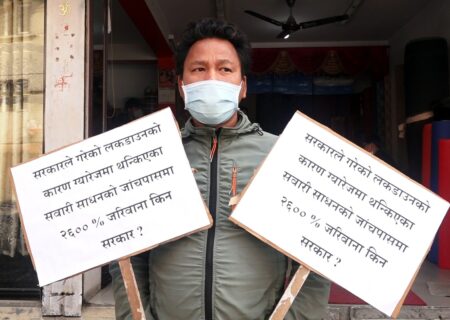 सरकारले गरेको लकडाउनको
कारण ग्यारेजमा थन्किएका
सवारी साधनको जांचपासमा
२६०० % जरिवाना किन
सरकार ?
सरकारले गरेको लकडाउनको
कारण ग्यारेजमा थन्किएका
सवारी साधनको जांचपासमा
२६०० % जरिवाना किन
सरकार ?